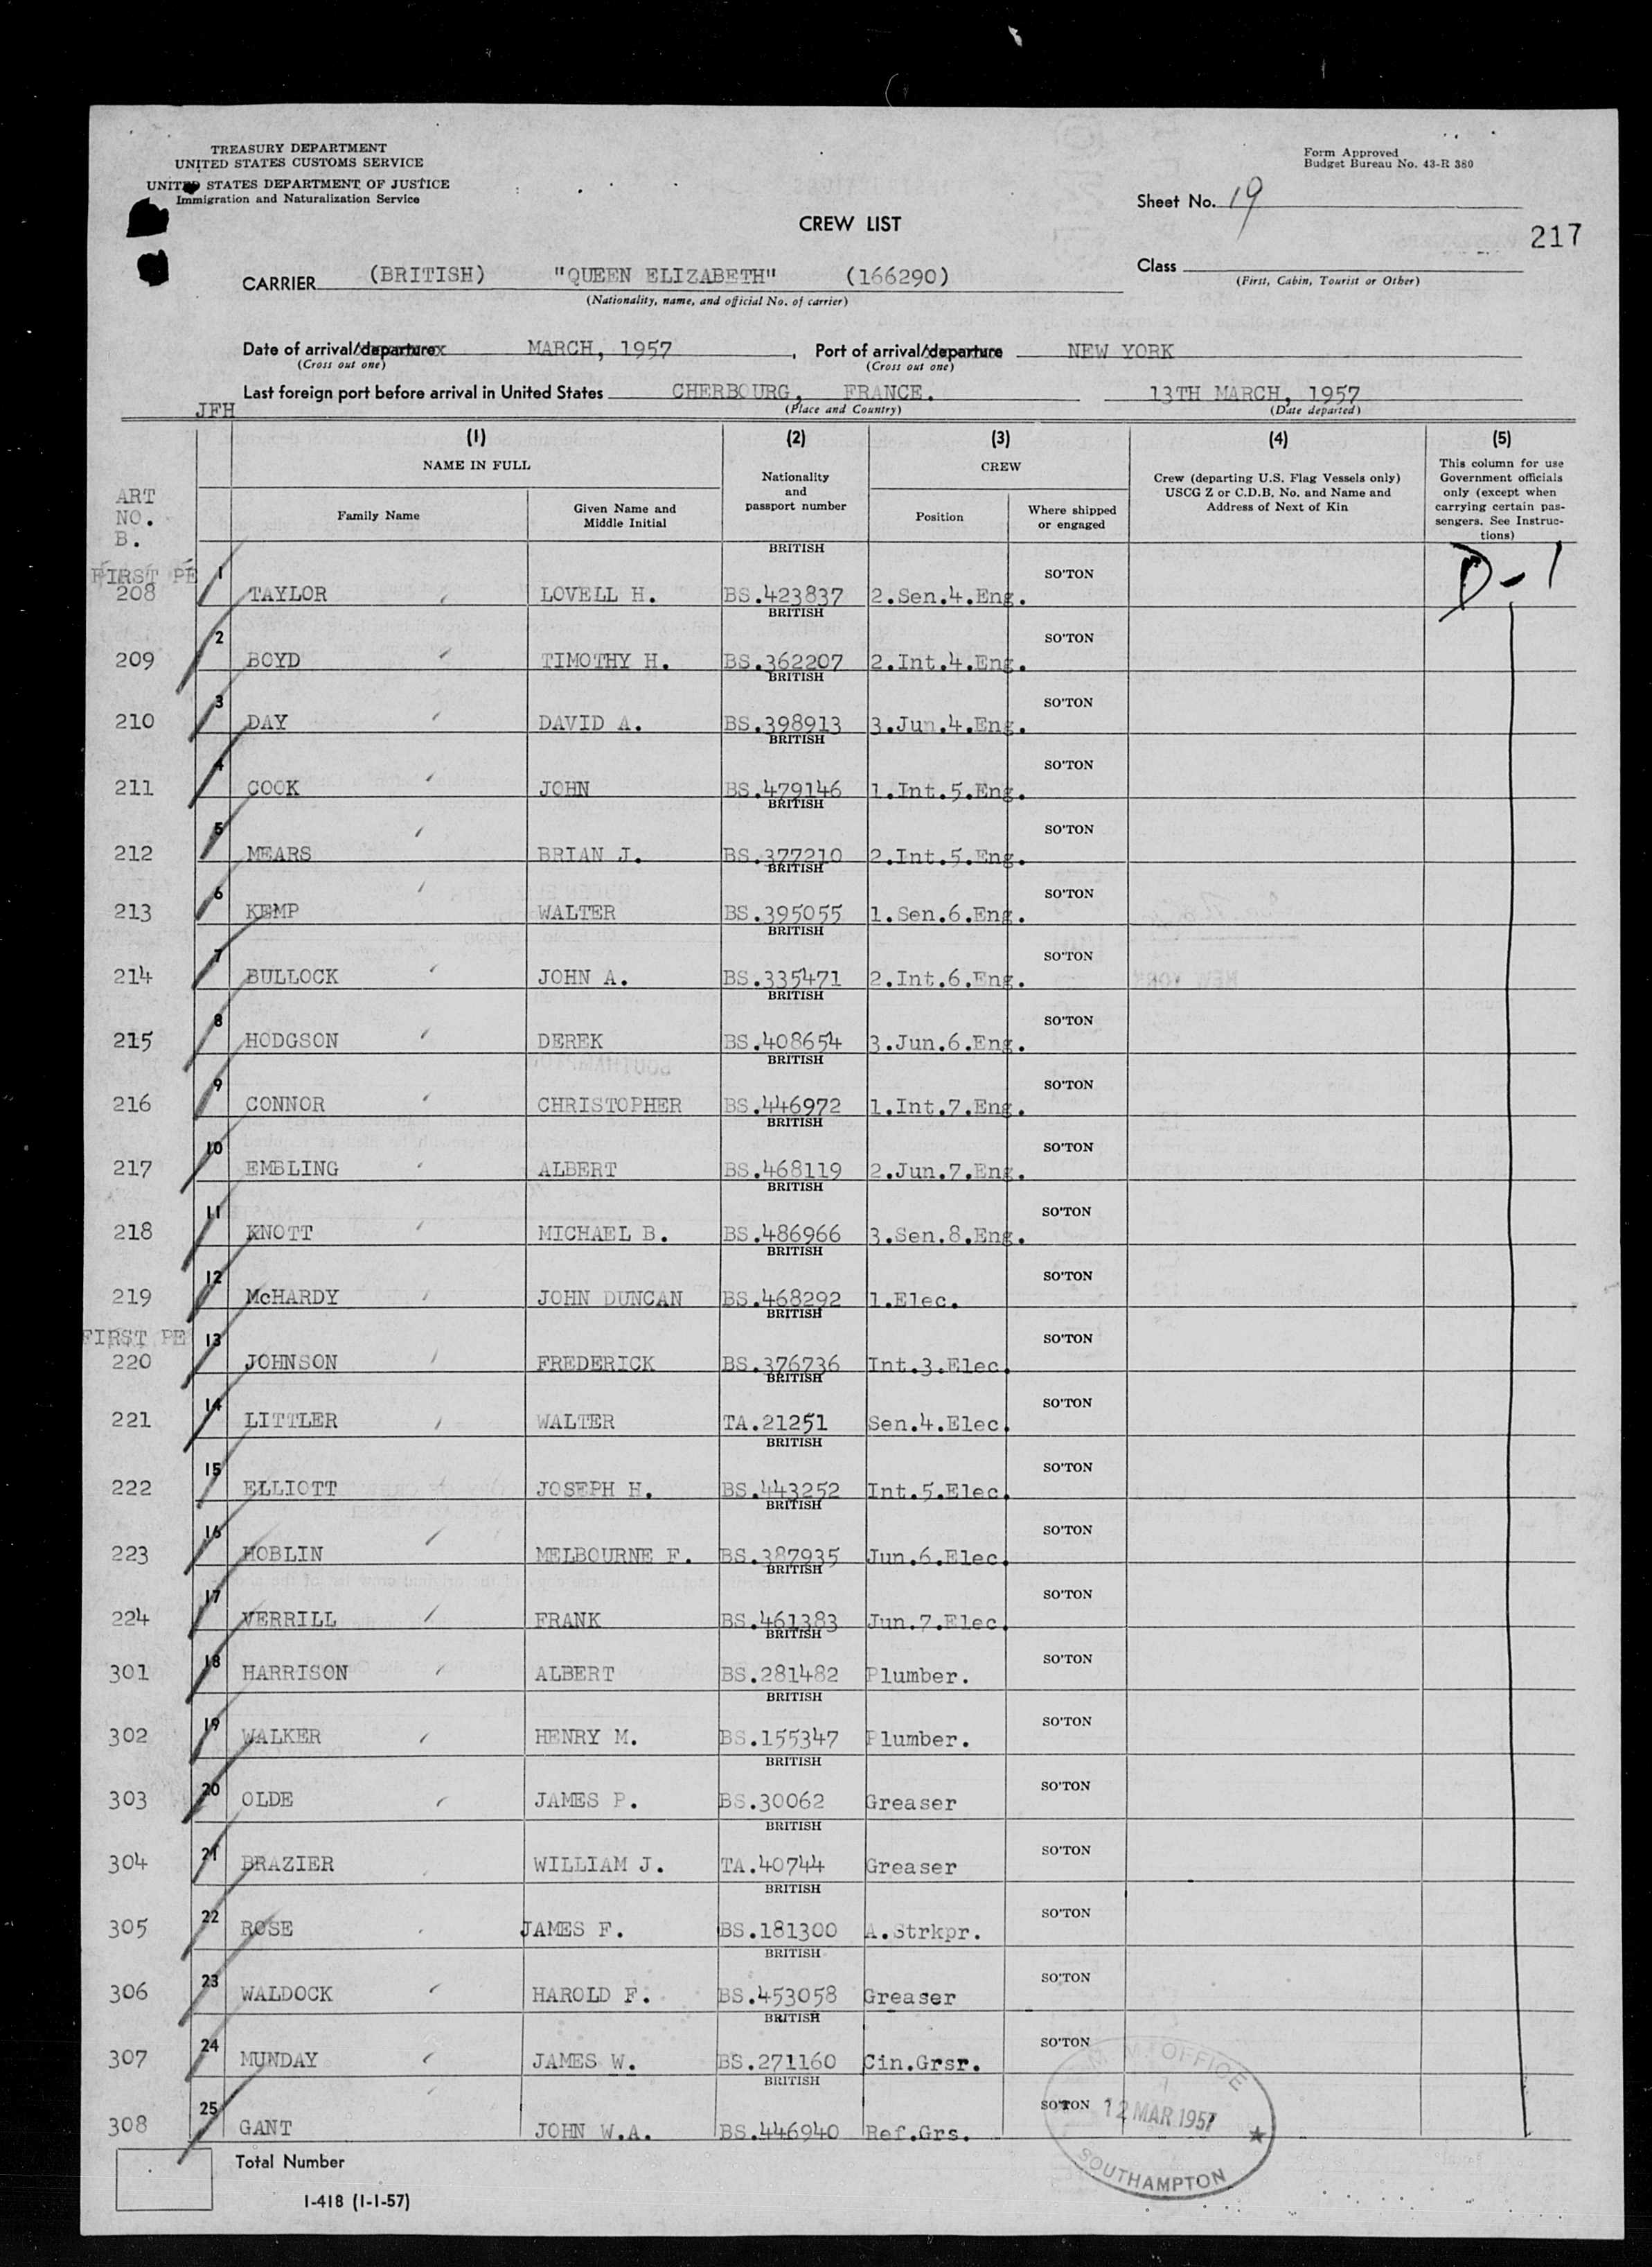 TREASURY DEPARTMENT
UNITED STATES CUSTOMS SERVICE
UNITED STATES DEPARTMENT OF JUSTICE
Immigration and Naturalization Service
Form Approved
Budget Bureau No. 43-R 380
Sheet No. 19
CREW LIST
217
Class
(First, Cabin, Tourist or Other)
CARRIER (BRITISH) "QUEEN ELIZABETH" (166290)
(Nationality, name, and official No. of carrier)
Date of arrival/departurex MARCH, 1957, Port of arrival/departure NEW YORK
(Cross out one) (Cross out one)
Last foreign port before arrival in United States CHERBOURG, FRANCE. 13TH MARCH, 1957
(Place and Country) (Date departed)
JFH
(1) (2) (3) (4) (5)
NAME IN FULL
Nationality and passport number
CREW
Crew (departing U.S. Flag Vessels only) USCG Z or C.D.B. No. and Name and Address of Next of Kin
This column for use Government officials only (except when carrying certain passengers. See Instructions)
ART NO. B.
Family Name Given Name and Middle Initial Position Where shipped or engaged
D-1
FIRST PE
208 1 TAYLOR LOVELL H. BRITISH BS.423837 2.Sen.4.Eng. SO'TON
209 2 BOYD TIMOTHY H. BRITISH BS.362207 2.Int.4.Eng. SO'TON
210 3 DAY DAVID A. BRITISH BS.398913 3.Jun.4.Eng. SO'TON
211 4 COOK JOHN BRITISH BS.479146 1.Int.5.Eng. SO'TON
212 5 MEARS BRIAN J. BRITISH BS.377210 2.Int.5.Eng. SO'TON
213 6 KEMP WALTER BRITISH BS.395055 1.Sen.6.Eng. SO'TON
214 7 BULLOCK JOHN A. BRITISH BS.335471 2.Int.6.Eng. SO'TON
215 8 HODGSON DEREK BRITISH BS.408654 3.Jun.6.Eng. SO'TON
216 9 CONNOR CHRISTOPHER BRITISH BS.446972 1.Int.7.Eng. SO'TON
217 10 EMBLING ALBERT BRITISH BS.468119 2.Jun.7.Eng. SO'TON
218 11 KNOTT MICHAEL B. BRITISH BS.486966 3.Sen.8.Eng. SO'TON
219 12 McHARDY JOHN DUNCAN BRITISH BS.468292 1.Elec. SO'TON
FIRST PE
220 13 JOHNSON FREDERICK BRITISH BS.376736 Int.3.Elec. SO'TON
221 14 LITTLER WALTER BRITISH TA.21251 Sen.4.Elec. SO'TON
222 15 ELLIOTT JOSEPH H. BRITISH BS.443252 Int.5.Elec. SO'TON
223 16 HOBLIN MELBOURNE F. BRITISH BS.387935 Jun.6.Elec. SO'TON
224 17 VERRILL FRANK BRITISH BS.461383 Jun.7.Elec. SO'TON
301 18 HARRISON ALBERT BRITISH BS.281482 Plumber. SO'TON
302 19 WALKER HENRY M. BRITISH BS.155347 Plumber. SO'TON
303 20 OLDE JAMES P. BRITISH BS.30062 Greaser SO'TON
304 21 BRAZIER WILLIAM J. BRITISH TA.40744 Greaser SO'TON
305 22 ROSE JAMES F. BRITISH BS.181300 A.Strkpr. SO'TON
306 23 WALDOCK HAROLD F. BRITISH BS.453058 Greaser SO'TON
307 24 MUNDAY JAMES W. BRITISH BS.271160 Cin.Grsr. SO'TON
308 25 GANT JOHN W.A. BRITISH BS.446940 Ref.Grs. SO'TON
M. OFFICE
12 MAR 1957
SOUTHAMPTON
Total Number
I-418 (1-1-57)